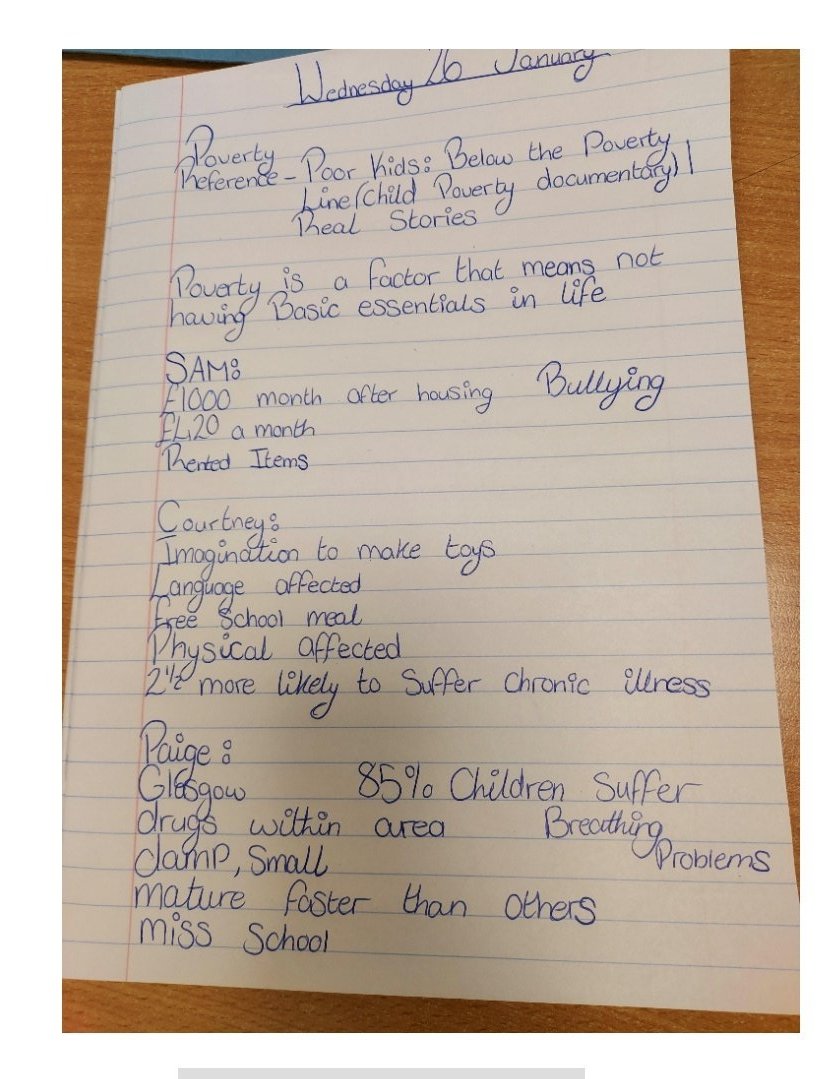 Wednesday 26 January
Poverty
Reference - Poor Kids: Below the Poverty
Line (Child Poverty documentary) |
Real Stories
Poverty is a factor that means not
having Basic essentials in life
SAM:
£1000 month after housing Bullying
£420 a month
Rented Items
Courtney:
Imagination to make toys
Language affected
Free School meal
Physical affected
2½ more likely to Suffer Chronic illness
Paige:
Glasgow 85% Children Suffer
drugs within area Breathing
damp, Small Problems
mature faster than others
miss School